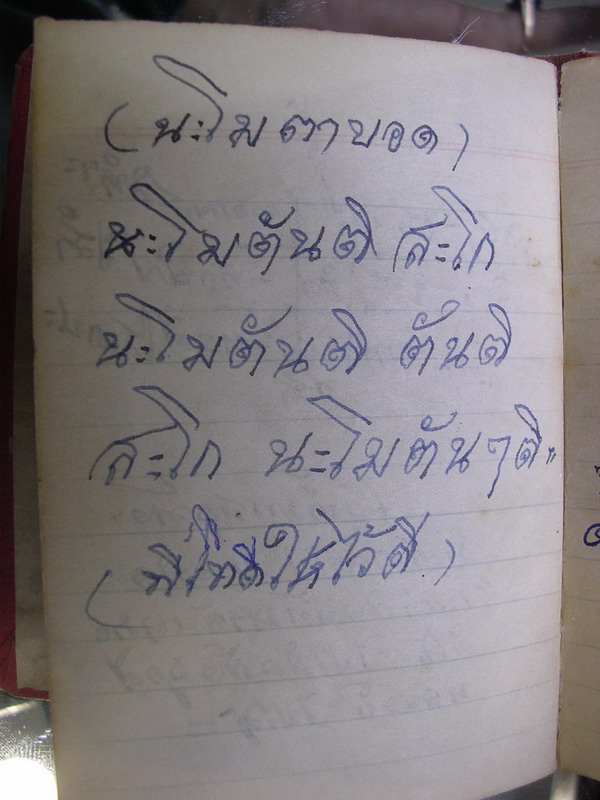 (นะโมตาบอด)
นะโมตันติ สะโก
นะโมตันติ ตันติ
สะโก นะโมตันๆติ"
ให้ไว้